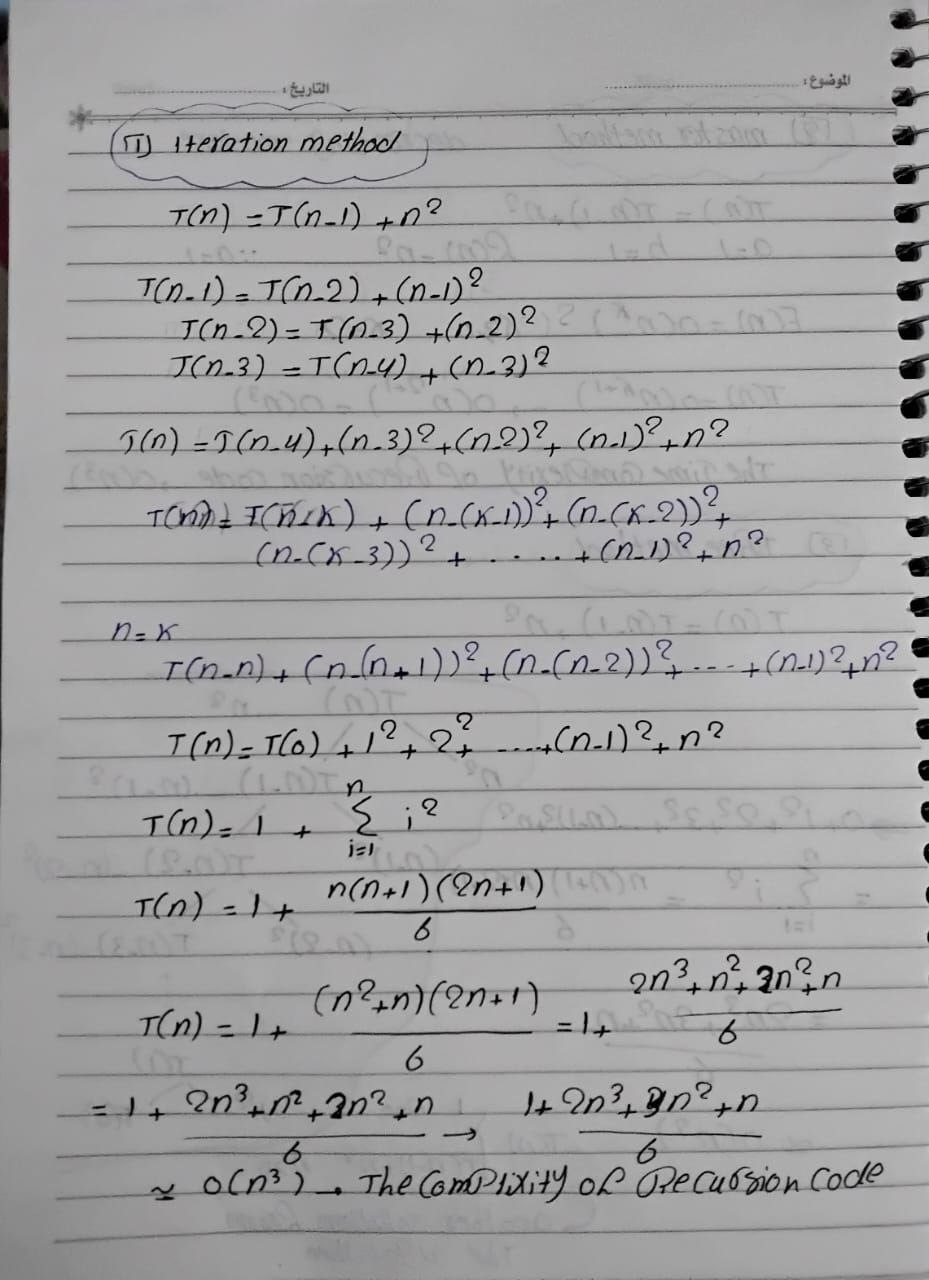 الموضوع: التاريخ:
(1) Iteration method
T(n) = T(n-1) + n²
T(n-1) = T(n-2) + (n-1)²
T(n-2) = T(n-3) + (n-2)²
T(n-3) = T(n-4) + (n-3)²
T(n) = T(n-4) + (n-3)² + (n-2)² + (n-1)² + n²
T(n) = T(n-k) + (n-(k-1))² + (n-(k-2))² +
(n-(k-3))² + . . . . + (n-1)² + n²
n = k
T(n-n) + (n-(n+1))² + (n-(n-2))² + .... + (n-1)² + n²
T(n) = T(0) + 1² + 2² + ....+ (n-1)² + n²
T(n) = 1 + n Σ i=1 i²
T(n) = 1 + n(n+1)(2n+1) / 6
T(n) = 1 + (n²+n)(2n+1) / 6 = 1 + 2n³+n²+2n²+n / 6
= 1 + 2n³+n²+2n²+n / 6 → 1 + 2n³+3n²+n / 6
≃ O(n³) → The Complixity of Recursion Code